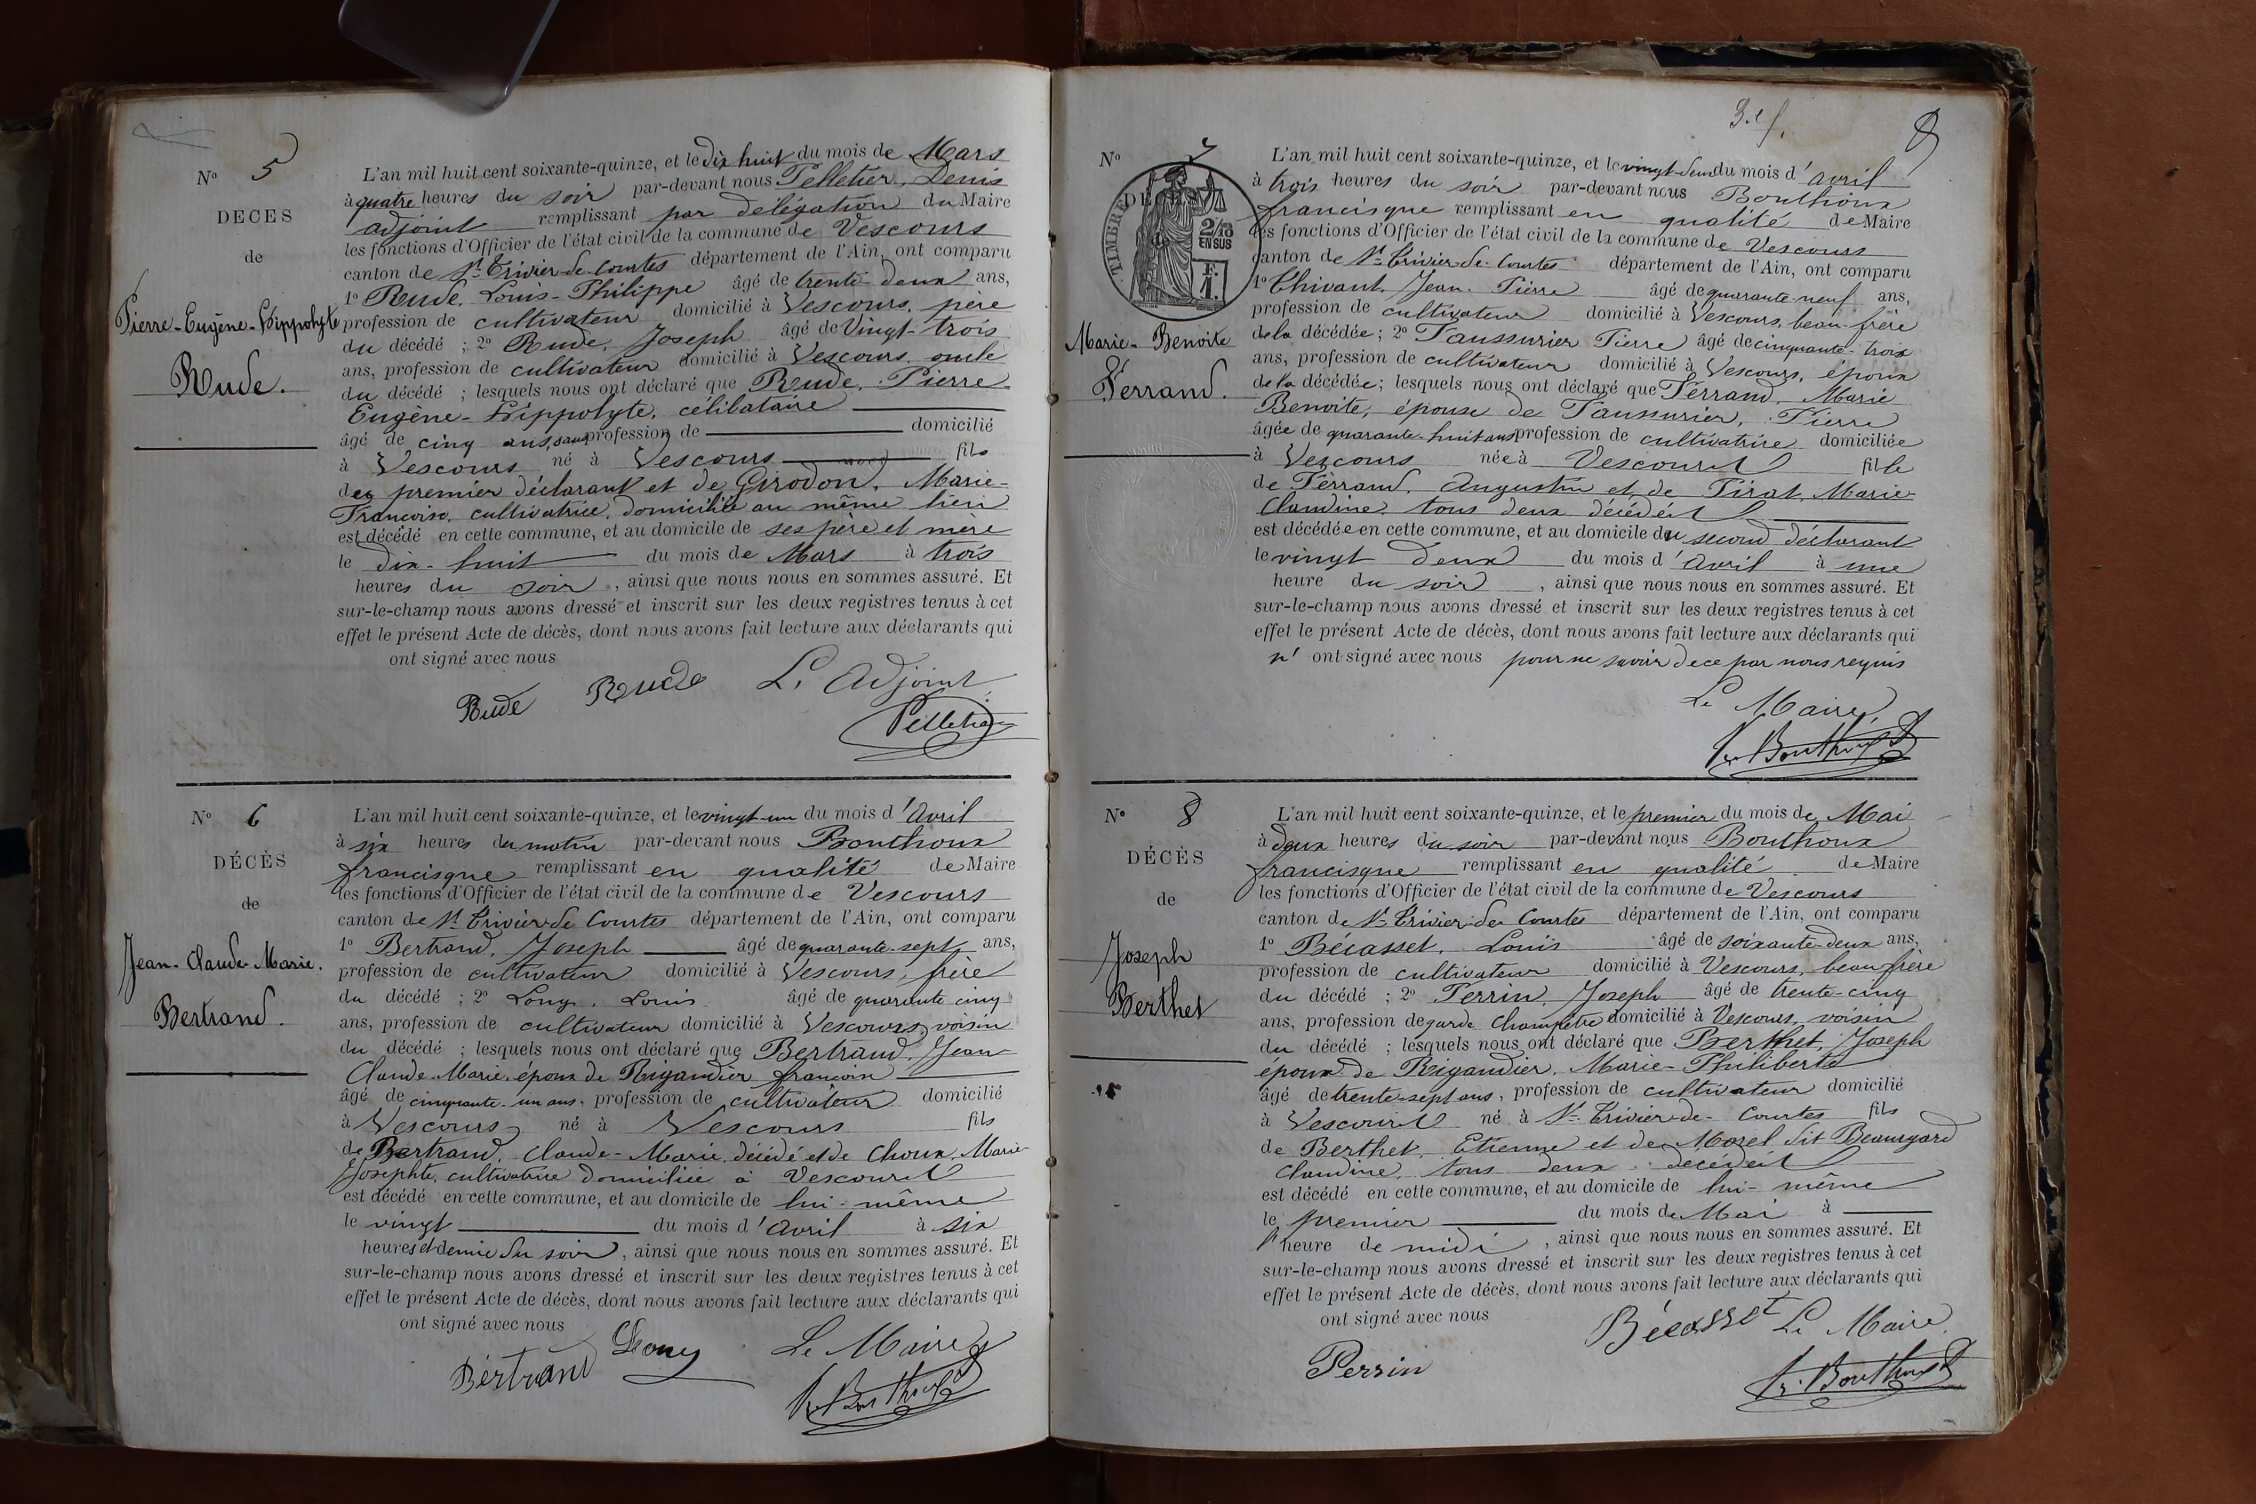 N° 5
DÉCES
de
Pierre-Eugène-Hippolyte
Rude.
L'an mil huit cent soixante-quinze, et le dix huit du mois de Mars
à quatre heures du soir par-devant nous Pelletier, Denis
adjoint remplissant par délégation du Maire
les fonctions d'Officier de l'état civil de la commune de Vescours
canton de St Trivier de Courtes département de l'Ain, ont comparu
1° Rude, Louis-Philippe âgé de trente deux ans,
profession de cultivateur domicilié à Vescours, père
du décédé ; 2° Rude, Joseph âgé de Vingt-trois
ans, profession de cultivateur domicilié à Vescours, oncle
du décédé ; lesquels nous ont déclaré que Rude, Pierre
Eugène-Hippolyte, célibataire
âgé de cinq ans, sans profession de domicilié
à Vescours né à Vescours fils
des premier déclarant et de Girodon, Marie-
Françoise, cultivatrice, domiciliée au même lieu
est décédé en cette commune, et au domicile de ses père et mère
le dix-huit du mois de Mars à trois
heures du soir, ainsi que nous nous en sommes assuré. Et
sur-le-champ nous avons dressé et inscrit sur les deux registres tenus à cet
effet le présent Acte de décès, dont nous avons fait lecture aux déclarants qui
ont signé avec nous
Rude Rude L'Adjoint
Pelletier
N° 6
DÉCÈS
de
Jean-Claude-Marie.
Bertrand.
L'an mil huit cent soixante-quinze, et le vingt-un du mois d'Avril
à six heures du matin par-devant nous Bouthoux
francisque remplissant en qualité de Maire
les fonctions d'Officier de l'état civil de la commune de Vescours
canton de St Trivier de Courtes département de l'Ain, ont comparu
1° Bertrand, Joseph âgé de quarante-sept ans,
profession de cultivateur domicilié à Vescours, frère
du décédé ; 2° Long, Louis âgé de quarante cinq
ans, profession de cultivateur domicilié à Vescours, voisin
du décédé ; lesquels nous ont déclaré que Bertrand, Jean
Claude-Marie, époux de
âgé de cinquante-un ans, profession de cultivateur domicilié
à Vescours né à Vescours fils
de Bertrand, Claude-Marie, décédé et de Choux, Marie-
Josephte, cultivatrice domiciliée à Vescours
est décédé en cette commune, et au domicile de lui-même
le vingt du mois d'Avril à six
heures et demie du soir, ainsi que nous nous en sommes assuré. Et
sur-le-champ nous avons dressé et inscrit sur les deux registres tenus à cet
effet le présent Acte de décès, dont nous avons fait lecture aux déclarants qui
ont signé avec nous
Bertrand Long Le Maire
Fr. Bouthoux
8
N° 7
DÉCÈS
TIMBRE
2/10
EN SUS
F.
1.
Marie-Benoite
Ferrand.
L'an mil huit cent soixante-quinze, et le vingt-deux du mois d'Avril
à trois heures du soir par-devant nous Bouthoux
francisque remplissant en qualité de Maire
les fonctions d'Officier de l'état civil de la commune de Vescours
canton de St Trivier de Courtes département de l'Ain, ont comparu
1° Thivant, Jean-Pierre âgé de quarante-neuf ans,
profession de cultivateur domicilié à Vescours, beau-frère
de la décédée ; 2° Paussurier Pierre âgé de cinquante-trois
ans, profession de cultivateur domicilié à Vescours, époux
de la décédée ; lesquels nous ont déclaré que Ferrand, Marie
Benoite, épouse de Paussurier, Pierre
âgée de quarante-huit ans profession de cultivatrice domiciliée
à Vescours née à Vescours fille
de Ferrand, Augustin et de Pirat, Marie-
Claudine, tous deux décédés
est décédée en cette commune, et au domicile du second déclarant
le vingt deux du mois d'Avril à une
heure du soir, ainsi que nous nous en sommes assuré. Et
sur-le-champ nous avons dressé et inscrit sur les deux registres tenus à cet
effet le présent Acte de décès, dont nous avons fait lecture aux déclarants qui
n'ont signé avec nous pour ne savoir de ce par nous requis
Le Maire,
Fr. Bouthoux
N° 8
DÉCÈS
de
Joseph
Berthet
L'an mil huit cent soixante-quinze, et le premier du mois de Mai
à deux heures du soir par-devant nous Bouthoux
francisque remplissant en qualité de Maire
les fonctions d'Officier de l'état civil de la commune de Vescours
canton de St Trivier de Courtes département de l'Ain, ont comparu
1° Bécasset, Louis âgé de soixante-deux ans,
profession de cultivateur domicilié à Vescours, beau frère
du décédé ; 2° Perrin, Joseph âgé de trente-cinq
ans, profession de garde champêtre domicilié à Vescours, voisin
du décédé ; lesquels nous ont déclaré que Berthet, Joseph
époux de Rigaudier, Marie-Philiberte
âgé de trente-sept ans, profession de cultivateur domicilié
à Vescours né à St Trivier-de-Courtes fils
de Berthet, Etienne et de Morel dit Beauregard
Claudine, tous deux décédés
est décédé en cette commune, et au domicile de lui-même
le premier du mois de Mai à
l'heure de midi, ainsi que nous nous en sommes assuré. Et
sur-le-champ nous avons dressé et inscrit sur les deux registres tenus à cet
effet le présent Acte de décès, dont nous avons fait lecture aux déclarants qui
ont signé avec nous
Bécasset Le Maire,
Perrin Fr. Bouthoux